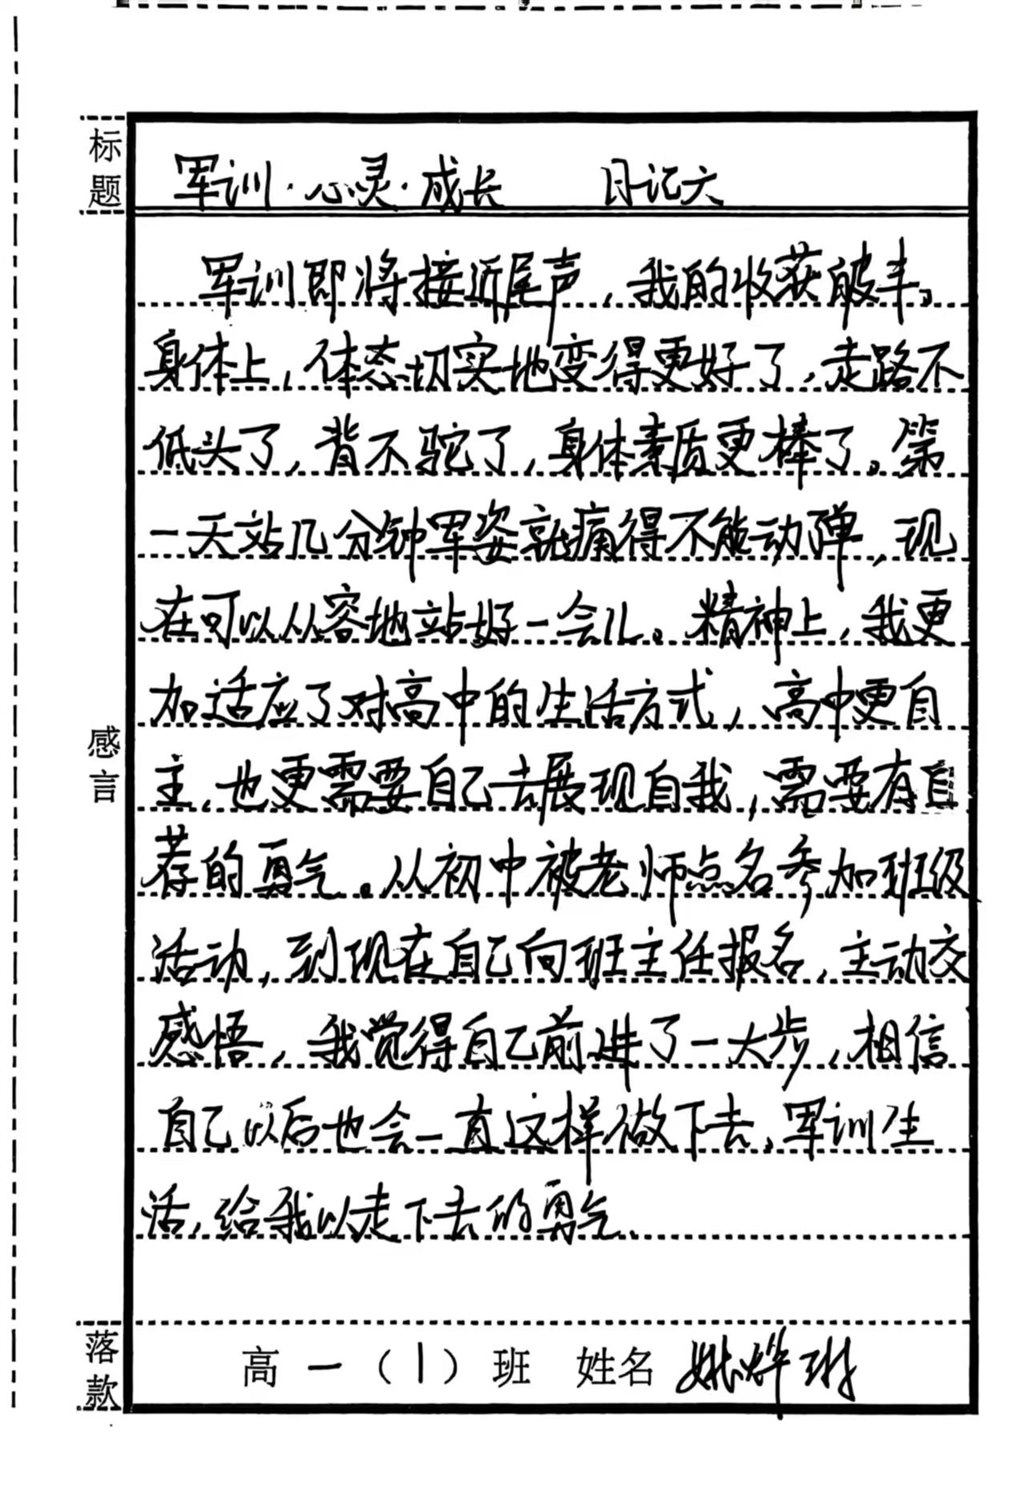 标题
军训·心灵·成长 日记六
军训即将接近尾声，我的收获颇丰。
身体上，体态切实地变得更好了，走路不
低头了，背不驼了，身体素质更棒了。第
一天站几分钟军姿就痛得不能动弹，现
在可以从容地站好一会儿。精神上，我更
加适应了对高中的生活方式，高中更自
主，也更需要自己去展现自我，需要有自
荐的勇气。从初中被老师点名参加班级
活动，到现在自己向班主任报名，主动交
感悟，我觉得自己前进了一大步，相信
自己以后也会一直这样做下去，军训生
活，给我以走下去的勇气。
感言
落款
高一（1）班 姓名 姚烨琳